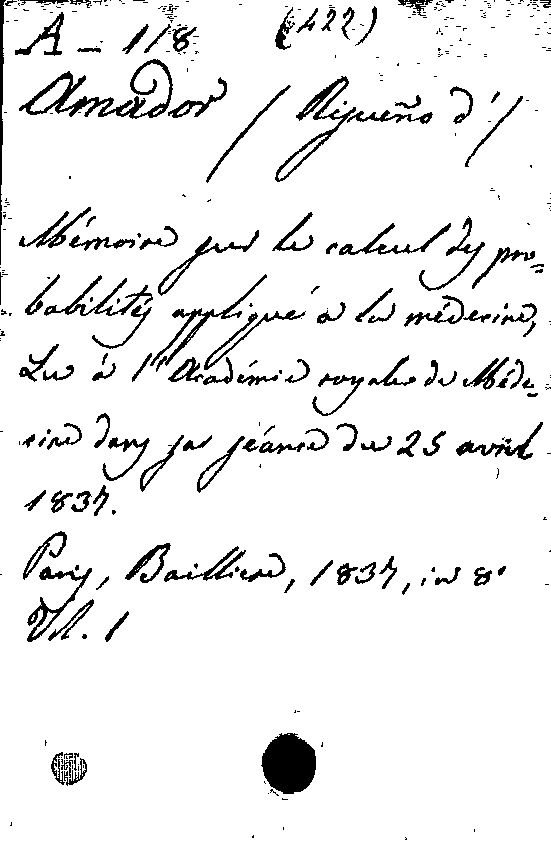 A - 118 (422)
Amador / Risueño d'/
Mémoire sur le calcul des pro=
babilités appliqué à la médecine,
Lu à l'Académie royale de Méde=
cine dans sa séance du 25 avril
1837.
Paris, Baillière, 1837, in 8º
Vol. 1